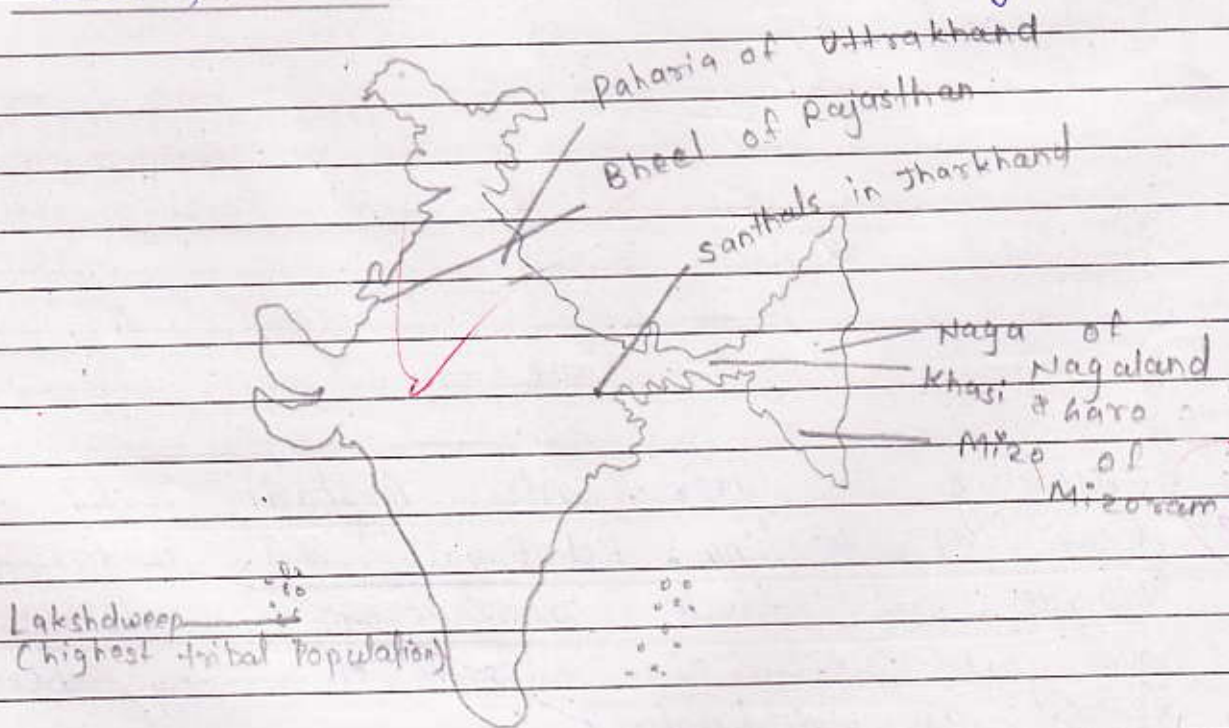 Paharia of Uttrakhand
Bheel of Rajasthan
Santhals in Jharkhand
Naga of
Nagaland
Khasi & Garo
Mizo of
Mizoram
Lakshdweep
(highest tribal Population)